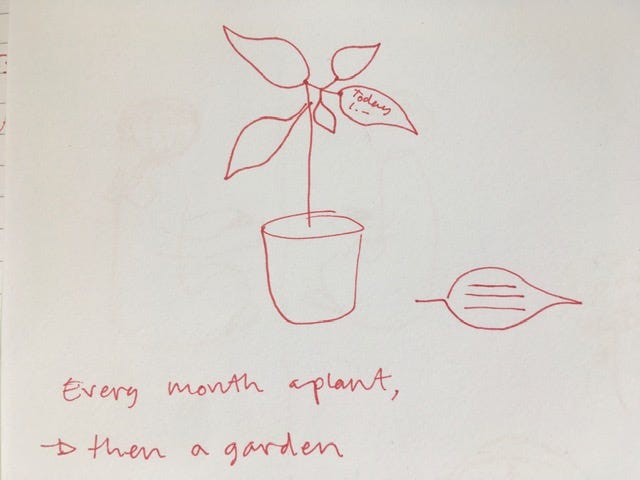 Today
I...
Every month a plant,
→ then a garden